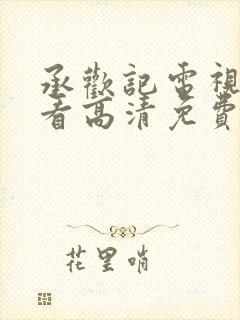 承歡記電視
看高清免費
花里哨